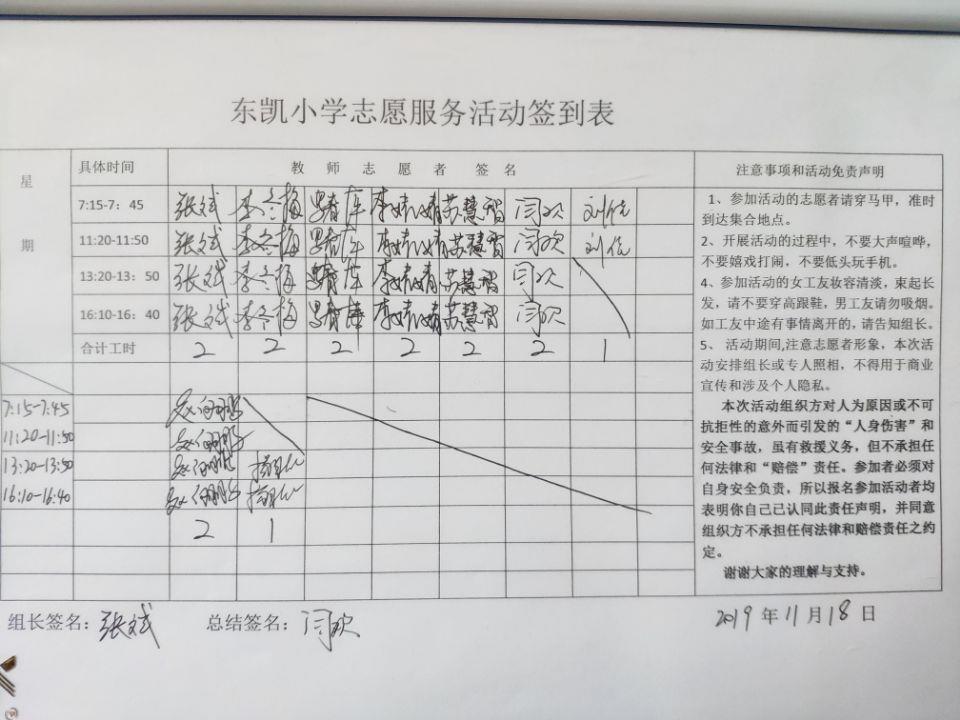 东凯小学志愿服务活动签到表
星期
具体时间 教师志愿者签名
7:15-7：45 张斌 李冬梅 李婧婧 苏慧 闫欢 刘
11:20-11:50 张斌 李冬梅 李婧婧 苏慧 闫欢 刘
13:20-13：50 张斌 李冬梅 李婧婧 苏慧 闫欢
16:10-16：40 张斌 李冬梅 李婧婧 苏慧 闫欢
合计工时 2 2 2 2 2 2 1
7:15-7:45
11:20-11:50
13:20-13:50
16:10-16:40
2 1
注意事项和活动免责声明
1、参加活动的志愿者请穿马甲，准时
到达集合地点。
2、开展活动的过程中，不要大声喧哗，
不要嬉戏打闹，不要低头玩手机。
4、参加活动的女工友妆容清淡，束起长
发，请不要穿高跟鞋，男工友请勿吸烟。
如工友中途有事情离开的，请告知组长。
5、 活动期间,注意志愿者形象，本次活
动安排组长或专人照相，不得用于商业
宣传和涉及个人隐私。
本次活动组织方对人为原因或不可
抗拒性的意外而引发的“人身伤害”和
安全事故，虽有救援义务，但不承担任
何法律和“赔偿”责任。参加者必须对
自身安全负责，所以报名参加活动者均
表明你自己已认同此责任声明，并同意
组织方不承担任何法律和赔偿责任之约
定。
谢谢大家的理解与支持。
组长签名：张斌 总结签名：闫欢 2019年11月18日